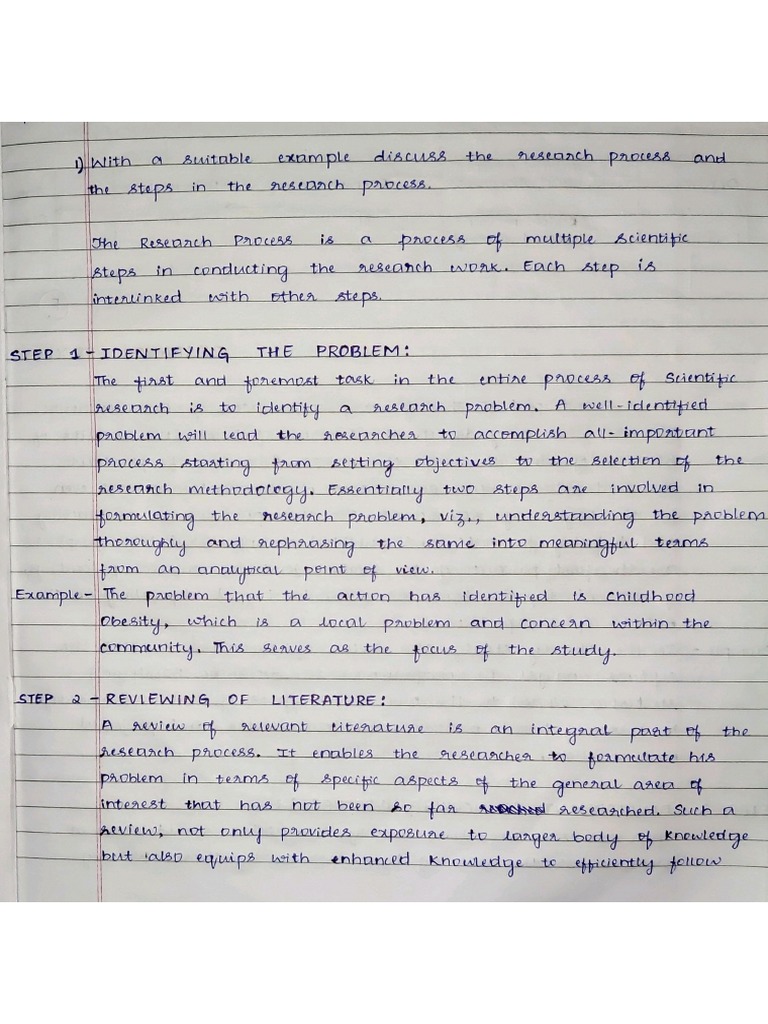 1) With a suitable example discuss the research process and
the steps in the research process.
The Research Process is a process of multiple scientific
steps in conducting the research work. Each step is
interlinked with other steps.
STEP 1 - IDENTIFYING THE PROBLEM:
The first and foremost task in the entire process of Scientific
research is to identify a research problem. A well-identified
problem will lead the researcher to accomplish all-important
process starting from setting objectives to the selection of the
research methodology. Essentially two steps are involved in
formulating the research problem, viz., understanding the problem
thoroughly and rephrasing the same into meaningful terms
from an analytical point of view.
Example - The problem that the action has identified is childhood
Obesity, which is a local problem and concern within the
community. This serves as the focus of the study.
STEP 2 - REVIEWING OF LITERATURE:
A review of relevant literature is an integral part of the
research process. It enables the researcher to formulate his
problem in terms of specific aspects of the general area of
interest that has not been so far researched. Such a
review, not only provides exposure to larger body of knowledge
but also equips with enhanced knowledge to efficiently follow